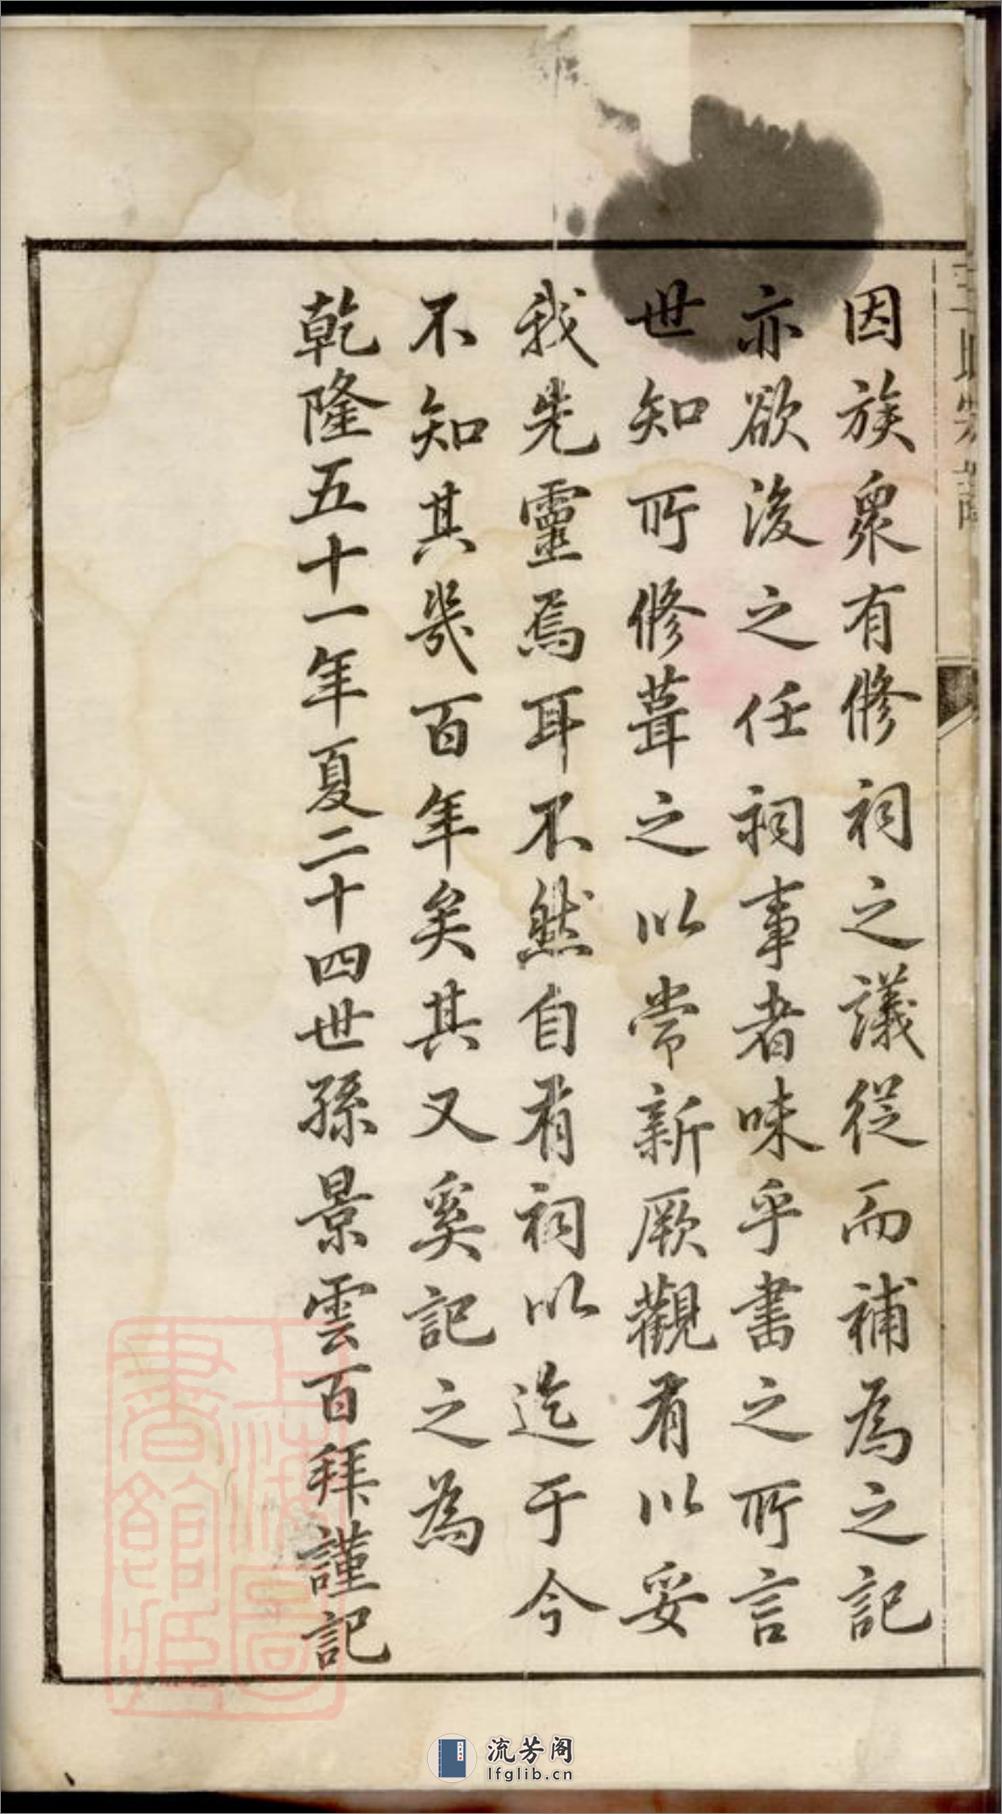 王氏宗譜
因族衆有修祠之議從而補為之記
亦欲後之任祠事者味乎書之所言
世知所修葺之以常新厥觀有以妥
我先靈焉耳不然自有祠以迄于今
不知其幾百年矣其又奚記之為
乾隆五十一年夏二十四世孫景雲百拜謹記
上海圖書館藏
流芳阁
lfglib.cn